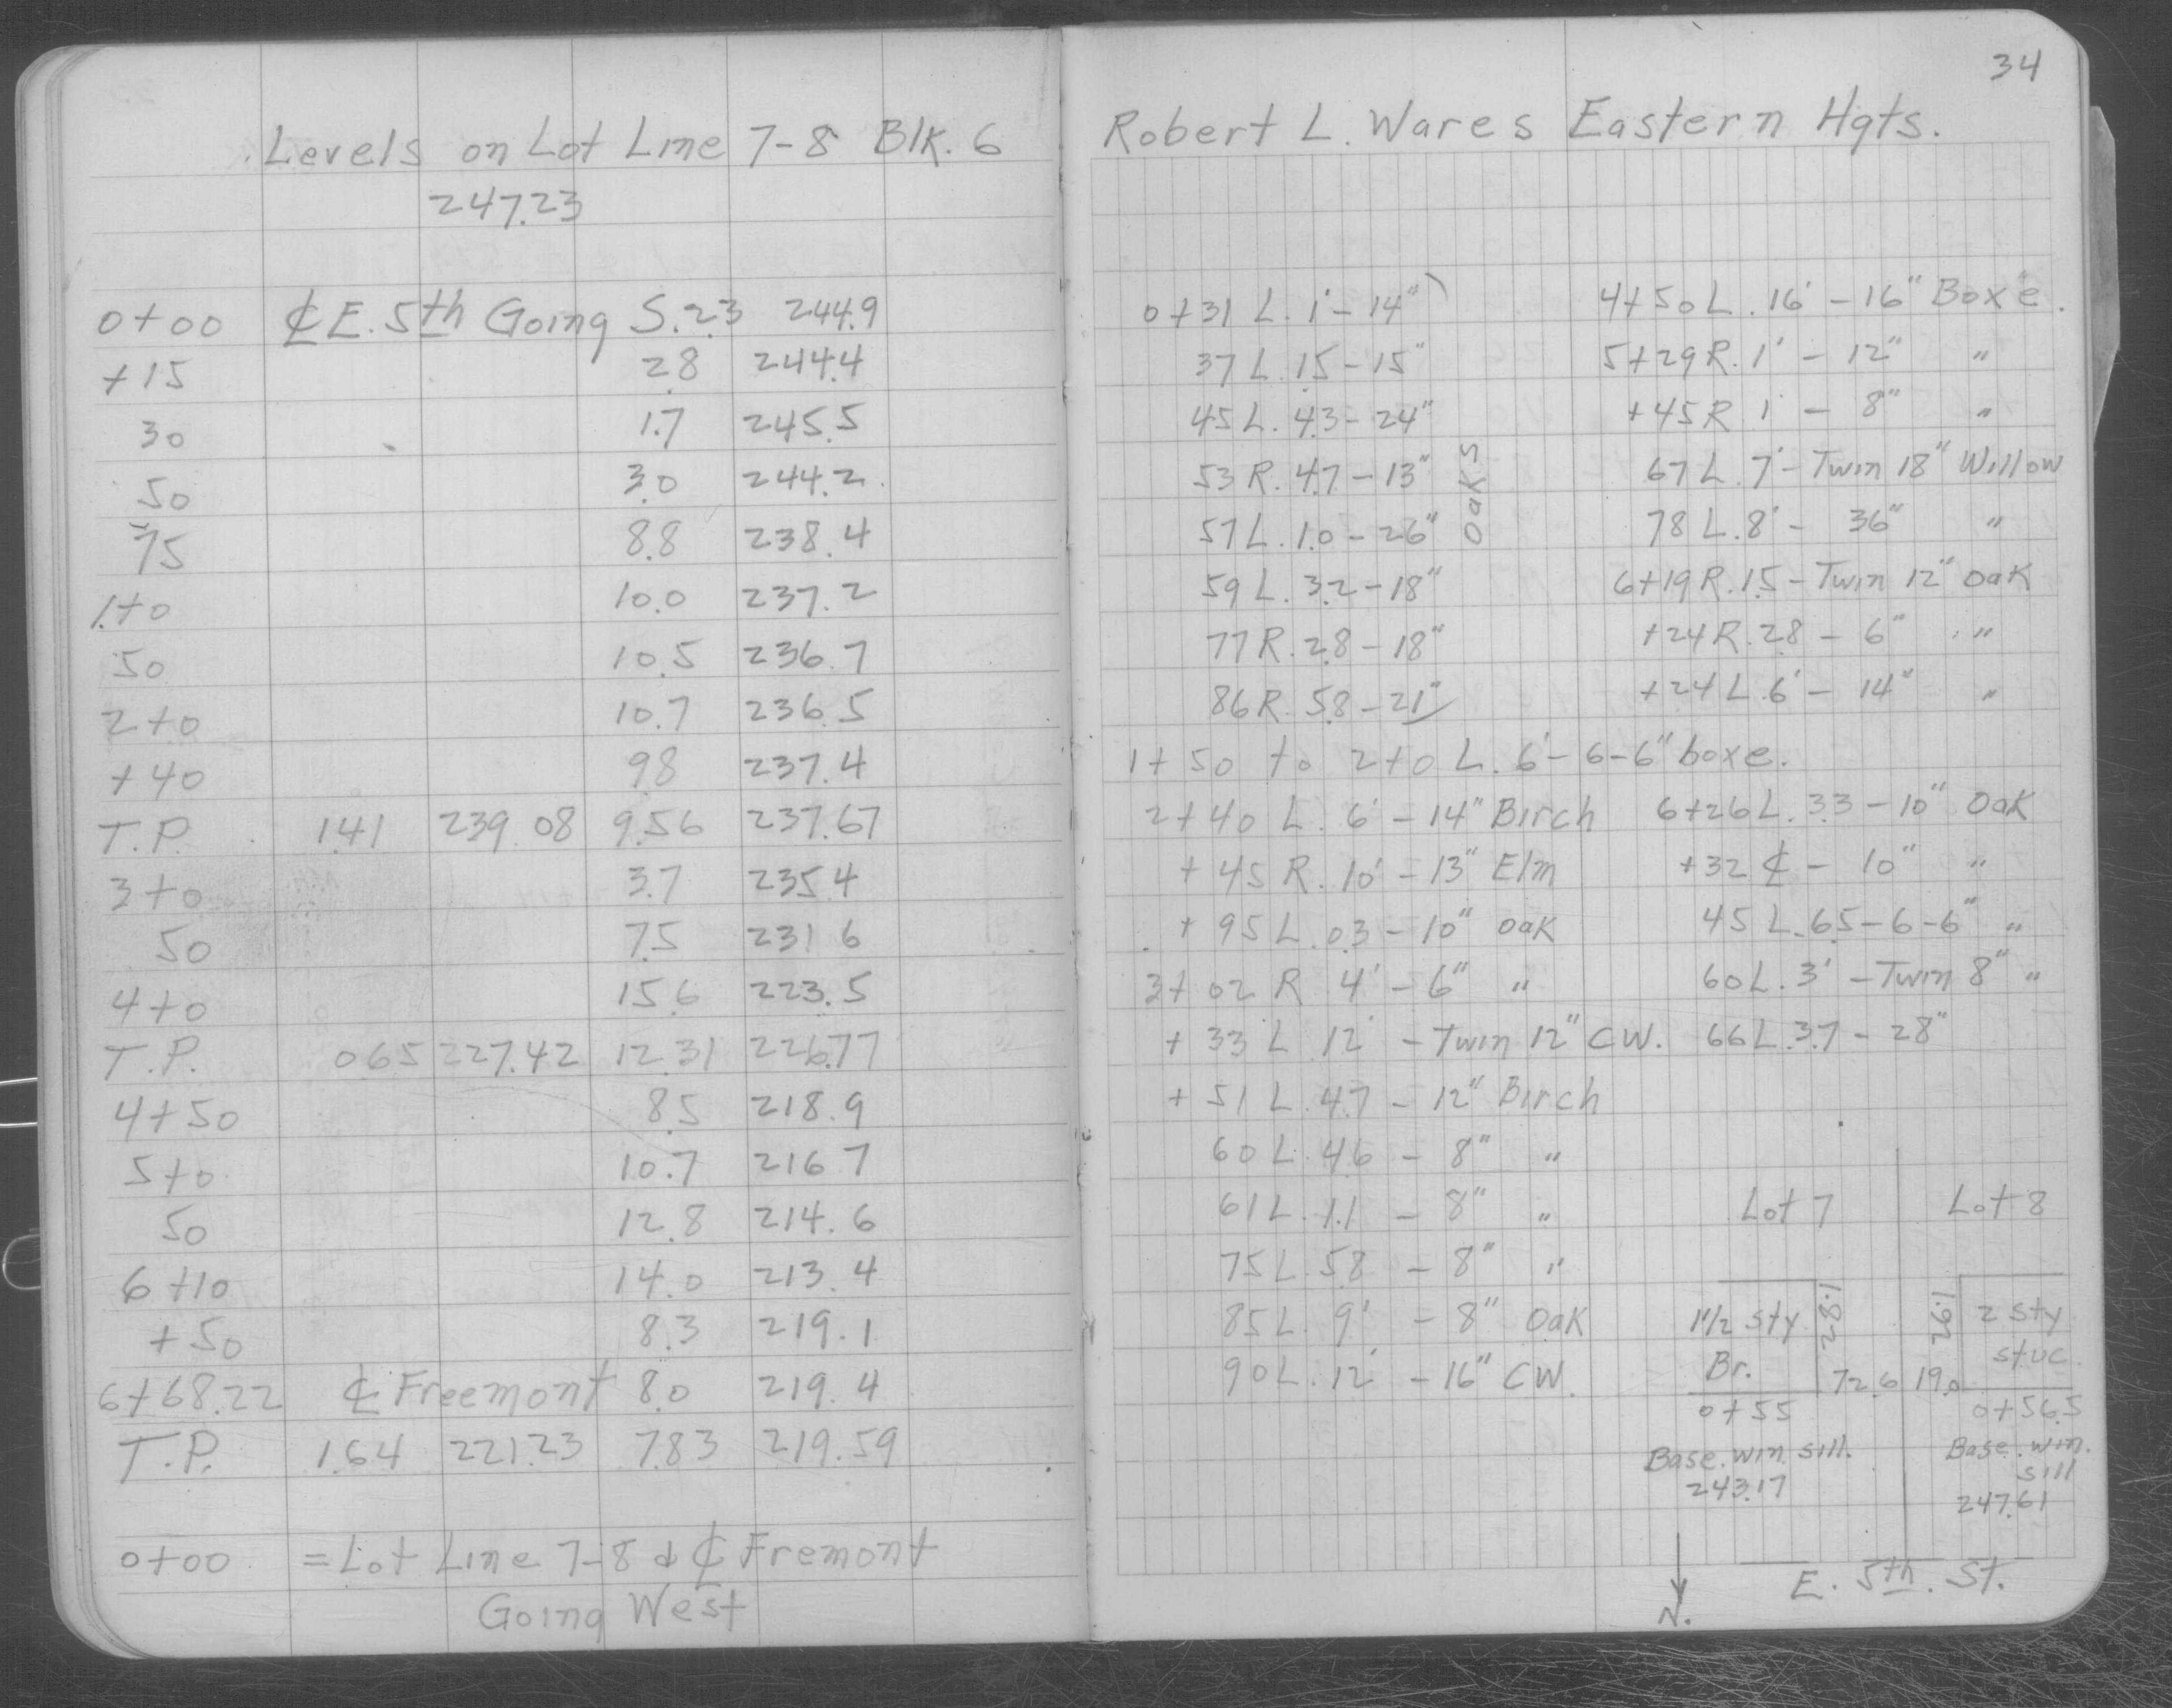 Levels on Lot Line 7-8 Blk. 6
247.23
0+00 ℄ E. 5th Going S. 2.3 244.9
+15 2.8 244.4
30 1.7 245.5
50 3.0 244.2
75 8.8 238.4
1+0 10.0 237.2
50 10.5 236.7
2+0 10.7 236.5
+40 9.8 237.4
T.P. 1.41 239.08 9.56 237.67
3+0 3.7 235.4
50 7.5 231.6
4+0 15.6 223.5
T.P. 0.65 227.42 12.31 226.77
4+50 8.5 218.9
5+0 10.7 216.7
50 12.8 214.6
6+10 14.0 213.4
+50 8.3 219.1
6+68.22 ℄ Freemont 8.0 219.4
T.P. 1.64 221.23 7.83 219.59
0+00 = Lot Line 7-8 & ℄ Fremont
Going West
34
Robert L. Wares Eastern Hgts.
0+31 L. 1' - 14"
37 L. 1.5 - 15"
45 L. 4.3 - 24"
53 R. 4.7 - 13"
57 L. 1.0 - 26"
59 L. 3.2 - 18"
77 R. 2.8 - 18"
86 R. 5.8 - 21"
Oaks
4+50 L. 16' - 16" Boxe.
5+29 R. 1' - 12" "
+45 R 1' - 8" "
67 L. 7' - Twin 18" Willow
78 L. 8' - 36" "
6+19 R. 1.5 - Twin 12" Oak
+24 R. 2.8 - 6" "
+24 L. 6' - 14" "
1+50 to 2+0 L. 6' - 6-6" boxe.
2+40 L. 6' - 14" Birch
+45 R. 10' - 13" Elm
+95 L. 0.3 - 10" Oak
3+02 R 4' - 6" "
+33 L. 12' - Twin 12" CW.
+51 L. 4.7 - 12" Birch
60 L. 4.6 - 8" "
61 L. 1.1 - 8" "
75 L. 5.8 - 8" "
85 L. 9' - 8" Oak
90 L. 12' - 16" CW.
6+26 L. 3.3 - 10" Oak
+32 ℄ - 10" "
45 L. 6.5 - 6-6" "
60 L. 3' - Twin 8" "
66 L. 3.7 - 28"
Lot 7 Lot 8
1 1/2 sty Br.
28.1
26.1
2 sty
stuc.
72.6 19.0
0+55
0+56.5
Base. win. sill.
243.17
Base. win.
sill
247.61
N.
E. 5th. St.